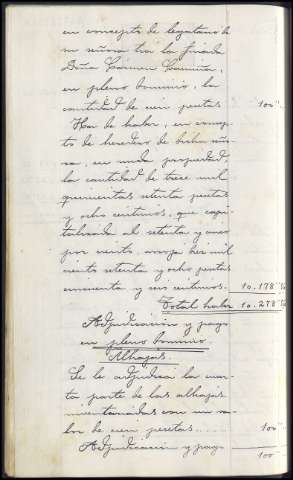 en concepto de legatario de
su señora tia la finada
Doña Cármen
en pleno dominio, la
cantidad de cien pesetas 100"
Ha de haber, en concep-
to de heredero de dicha seño-
ra, en nuda propiedad
la cantidad de trece mil
quinientas setenta pesetas
y ocho centimos, que capi-
talizada al setenta y cinco
por ciento, arroja diez mil
ciento setenta y ocho pesetas
cincuenta y seis centimos. 10.178"56
Total haber 10.278"56
Adjudicacion y pago
en pleno dominio.
Alhajas.
Se le adjudica la cuar-
ta parte de las alhajas
inventariadas con un va-
lor de cien pesetas..... 100"
Adjudicacion y pago 100"